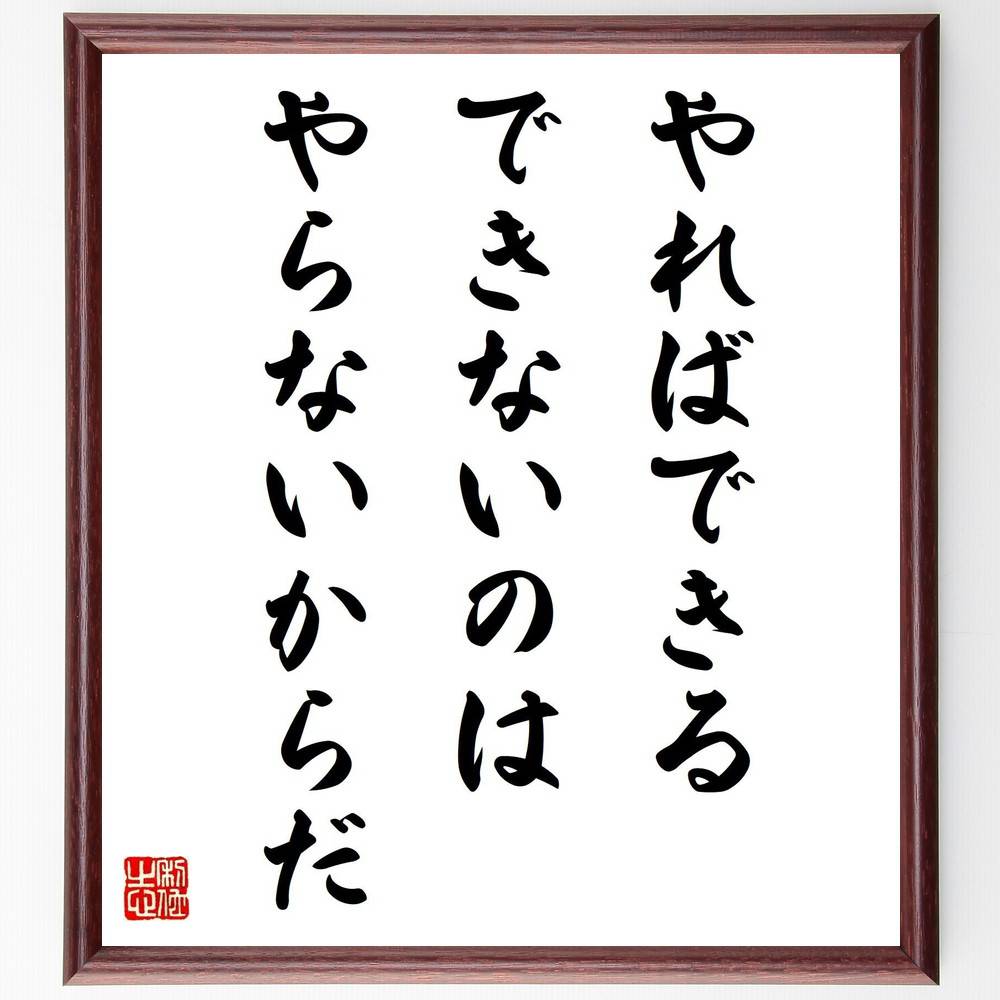 やればできる
できないのは
やらないからだ